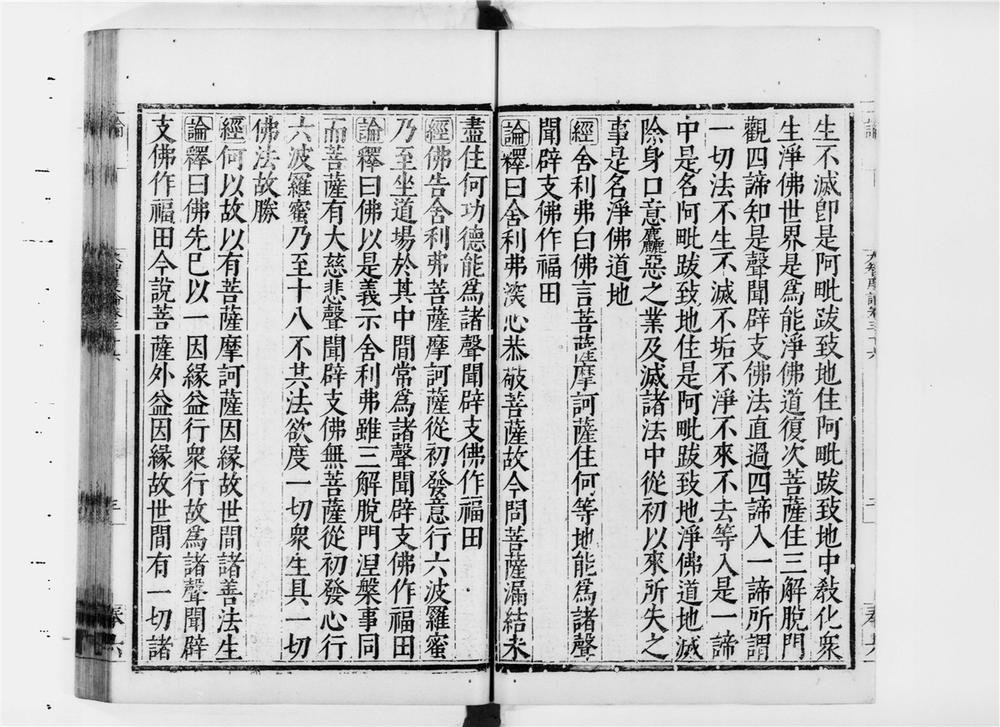 生不滅卽是阿毗跋致地住阿毗跋致地中敎化衆
生淨佛世界是爲能淨佛道復次菩薩住三解脫門
觀四諦知是聲聞辟支佛法直過四諦入一諦所謂
一切法不生不滅不垢不淨不來不去等入是一諦
中是名阿毗跋致地住是阿毗跋致地淨佛道地滅
除身口意麤惡之業及滅諸法中從初以來所失之
事是名淨佛道地
經舍利弗白佛言菩薩摩訶薩住何等地能爲諸聲
聞辟支佛作福田
論釋曰舍利弗深心恭敬菩薩故今問菩薩漏結未
盡住何功德能爲諸聲聞辟支佛作福田
經佛告舍利弗菩薩摩訶薩從初發意行六波羅蜜
乃至坐道場於其中間常爲諸聲聞辟支佛作福田
論釋曰佛以是義示舍利弗雖三解脫門涅槃事同
而菩薩有大慈悲聲聞辟支佛無菩薩從初發心行
六波羅蜜乃至十八不共法欲度一切衆生具一切
佛法故勝
經何以故以有菩薩摩訶薩因緣故世間諸善法生
論釋曰佛先已以一因緣益行衆行故爲諸聲聞辟
支佛作福田今說菩薩外益因緣故世間有一切諸